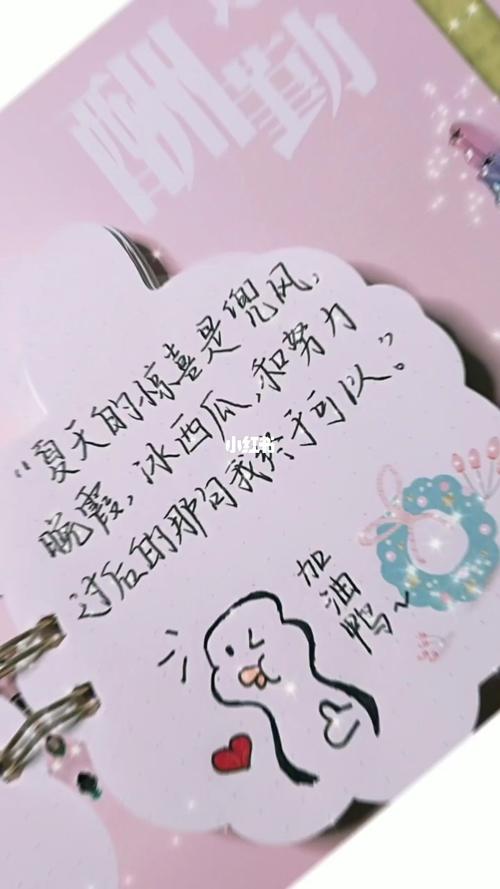 酬勤
“夏天的惊喜是兜风,
晚霞,冰西瓜,和努力
过后的那句我终于可以。”
小红书
加
油
鸭~